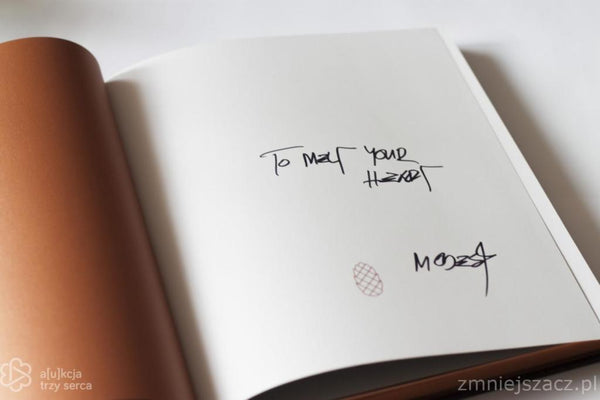 To MELT YOUR
HEART
MODEST
a[u]kcja
trzy serca
zmniejszacz.pl